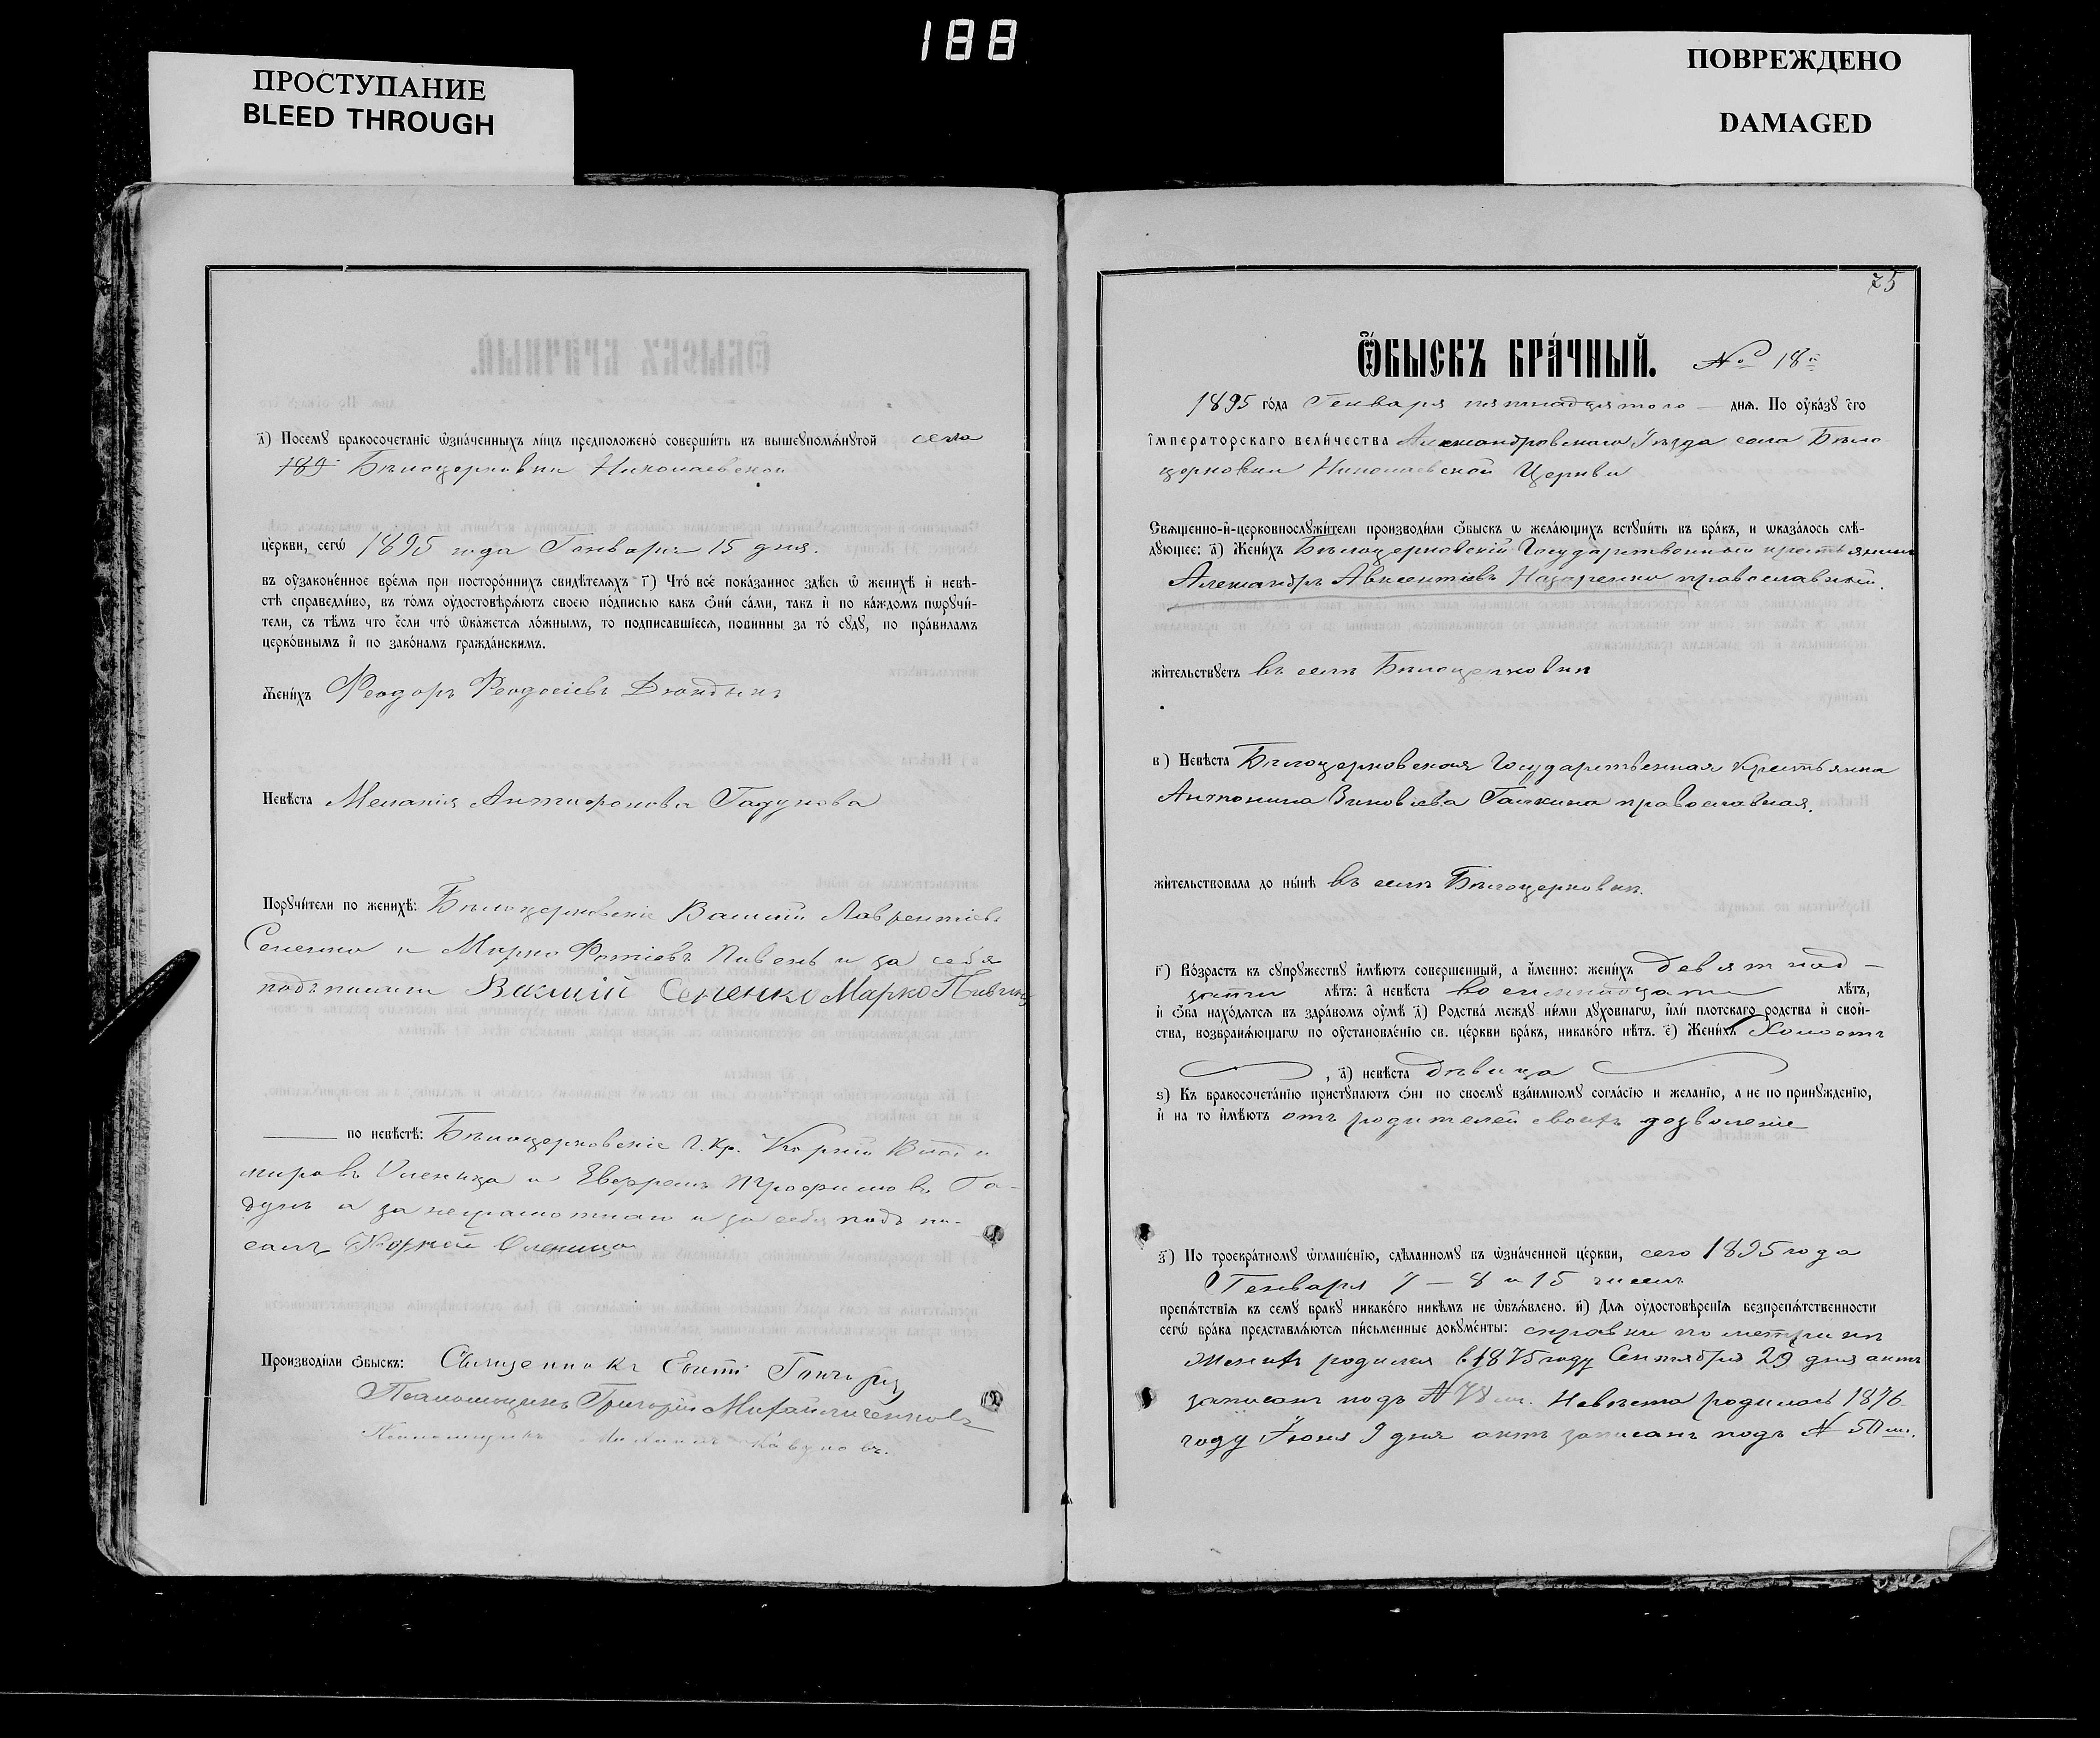 188
ПРОСТУПАНИЕ
BLEED THROUGH
ПОВРЕЖДЕНО
DAMAGED
д҃) Посемꙋ бракосочетанїе ѡ҆зна́ченныхъ ли́цъ предположено̀ соверши́ть въ вышеꙋпомѧ́нꙋтой села
189 Бѣлоцерковки Николаевской
це́ркви, сегѡ̀ 1895 года Генваря 15 дня.
въ ᲂу҆законе́нное вре́мѧ при посторо́ннихъ свидѣ́телѧхъ г҃) Что̀ всѐ пока́занное здѣ́сь ѡ҆ женихѣ̀ и҆ невѣ́-
стѣ справедли́во, въ то́мъ ᲂу҆достовѣрѧ́ютъ своею по́дписью какъ ѻ҆нѝ са́ми, та́къ и҆ по ка́ждомъ пѡрꙋчи́-
тели, съ тѣ́мъ что̀ є҆́сли что̀ ѡ҆ка́жетсѧ ло́жнымъ, то подписавшїесѧ, повинны за то̀ сꙋдꙋ̀, по пра́виламъ
церко́внымъ и҆ по зако́намъ гражда́нскимъ.
Жени́хъ Ѳеодоръ Ѳеодосіевъ
Невѣ́ста Меланія Гадунова
Порꙋчи́тели по женихѣ̀: Бѣлоцерковскіе Василій Лаврентіевъ
Сененко и Марко Фотіевъ Пивень и за себя
подписали Василій Сененко Марко Пивень
по невѣ́стѣ: Бѣлоцерковскіе Г. Кр. Корній Влади
міровъ Оленица и Трофимовъ Га-
дунъ а за неграмотнаго и за себя подпи-
салъ Корній Оленица
Производи́ли ѻ҆́быскъ: Священникъ
Псаломщикъ Григорій
Псаломщикъ
75
Ѻ҆БЫСКЪ БРА́ЧНЫЙ. № 18й
1895 го́да Генваря пятнадцатаго дня. По ᲂу҆ка́зꙋ є҆гѡ̀
і҆мператорскаго вели́чества Александровскаго Уѣзда села Бѣло
церковки Николаевской Церкви
Свѧщенно-и҆-церковнослꙋжи́тели производи́ли ѻ҆́быскъ ѡ҆ жела́ющихъ встꙋпи́ть въ бра́къ, и ѡ҆каза́лось слѣ́-
дꙋющее: а҃) Жени́хъ Бѣлоцерковскій Государственный крестьянинъ
Александръ Авксентіевъ Назаренко православный.
жи́тельствꙋетъ въ селѣ Бѣлоцерковкѣ
в҃) Невѣ́ста Бѣлоцерковская Государственная крестьянка
Антонина Зиновіева Галкина православная.
жи́тельствовала до ны́нѣ въ селѣ Бѣлоцерковкѣ.
г҃) Во́зрастъ къ сꙋпрꙋ́жествꙋ и҆мѣ́ютъ соверше́нный, а и҆́менно: жени́хъ девятнад-
цати лѣ́тъ: а҆ невѣ́ста восемнадцати лѣ́тъ,
и҆ ѻ҆́ба нахо́дѧтсѧ въ здра́вомъ ᲂу҆мѣ̀ д҃) Родства̀ междꙋ ни́ми дꙋхо́внагѡ, и҆лѝ пло́тскаго родства и҆ свой-
ства̀, возбранѧ́ющагѡ по ᲂу҆становле́нїю св. це́ркви бра́къ, никако́го нѣ́тъ. є҃) Жени́хъ Холостъ
, а҃) невѣ́ста дѣвица
ѕ҃) Къ бракосочета́нїю пристꙋпа́ютъ ѻ҆нѝ по своемꙋ̀ вза́имномꙋ согла́сїю и жела́нїю, а не по принꙋжде́нїю,
и҆ на то и҆мѣ́ютъ отъ родителей своихъ дозволеніе
з҃) По троекра́тномꙋ ѡ҆глаше́нїю, сдѣ́ланномꙋ въ ѡ҆зна́ченной це́ркви, сего 1895 года
Генваря 7 – 8 и 15 чиселъ
препѧ́тствїѧ къ семꙋ̀ бракꙋ никако́го никѣ́мъ не ѡ҆бъѧ́влено. и҃) Длѧ ᲂу҆достовѣ́ренїѧ безпрепѧ́тственности
сегѡ̀ бра́ка представлѧ́ютсѧ пи́сьменные докꙋме́нты: справки по метрикѣ
Женихъ родился въ 1875 году Сентября 29 дня актъ
записанъ подъ № Невѣста родилась 1876
году Іюня 9 дня актъ записанъ подъ № 50мъ.